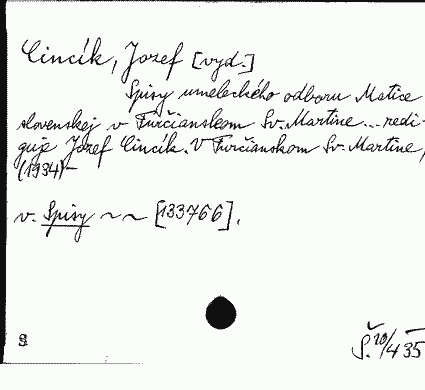 Cincík, Jozef [vyd.]
Spisy umeleckého odboru Matice
slovenskej v Turčianskom Sv. Martine... redi-
guje Jozef Cincík. V Turčianskom Sv. Martine,
(1934)-
v. Spisy ~ ~ [133766].
9
Š. 20/4 35